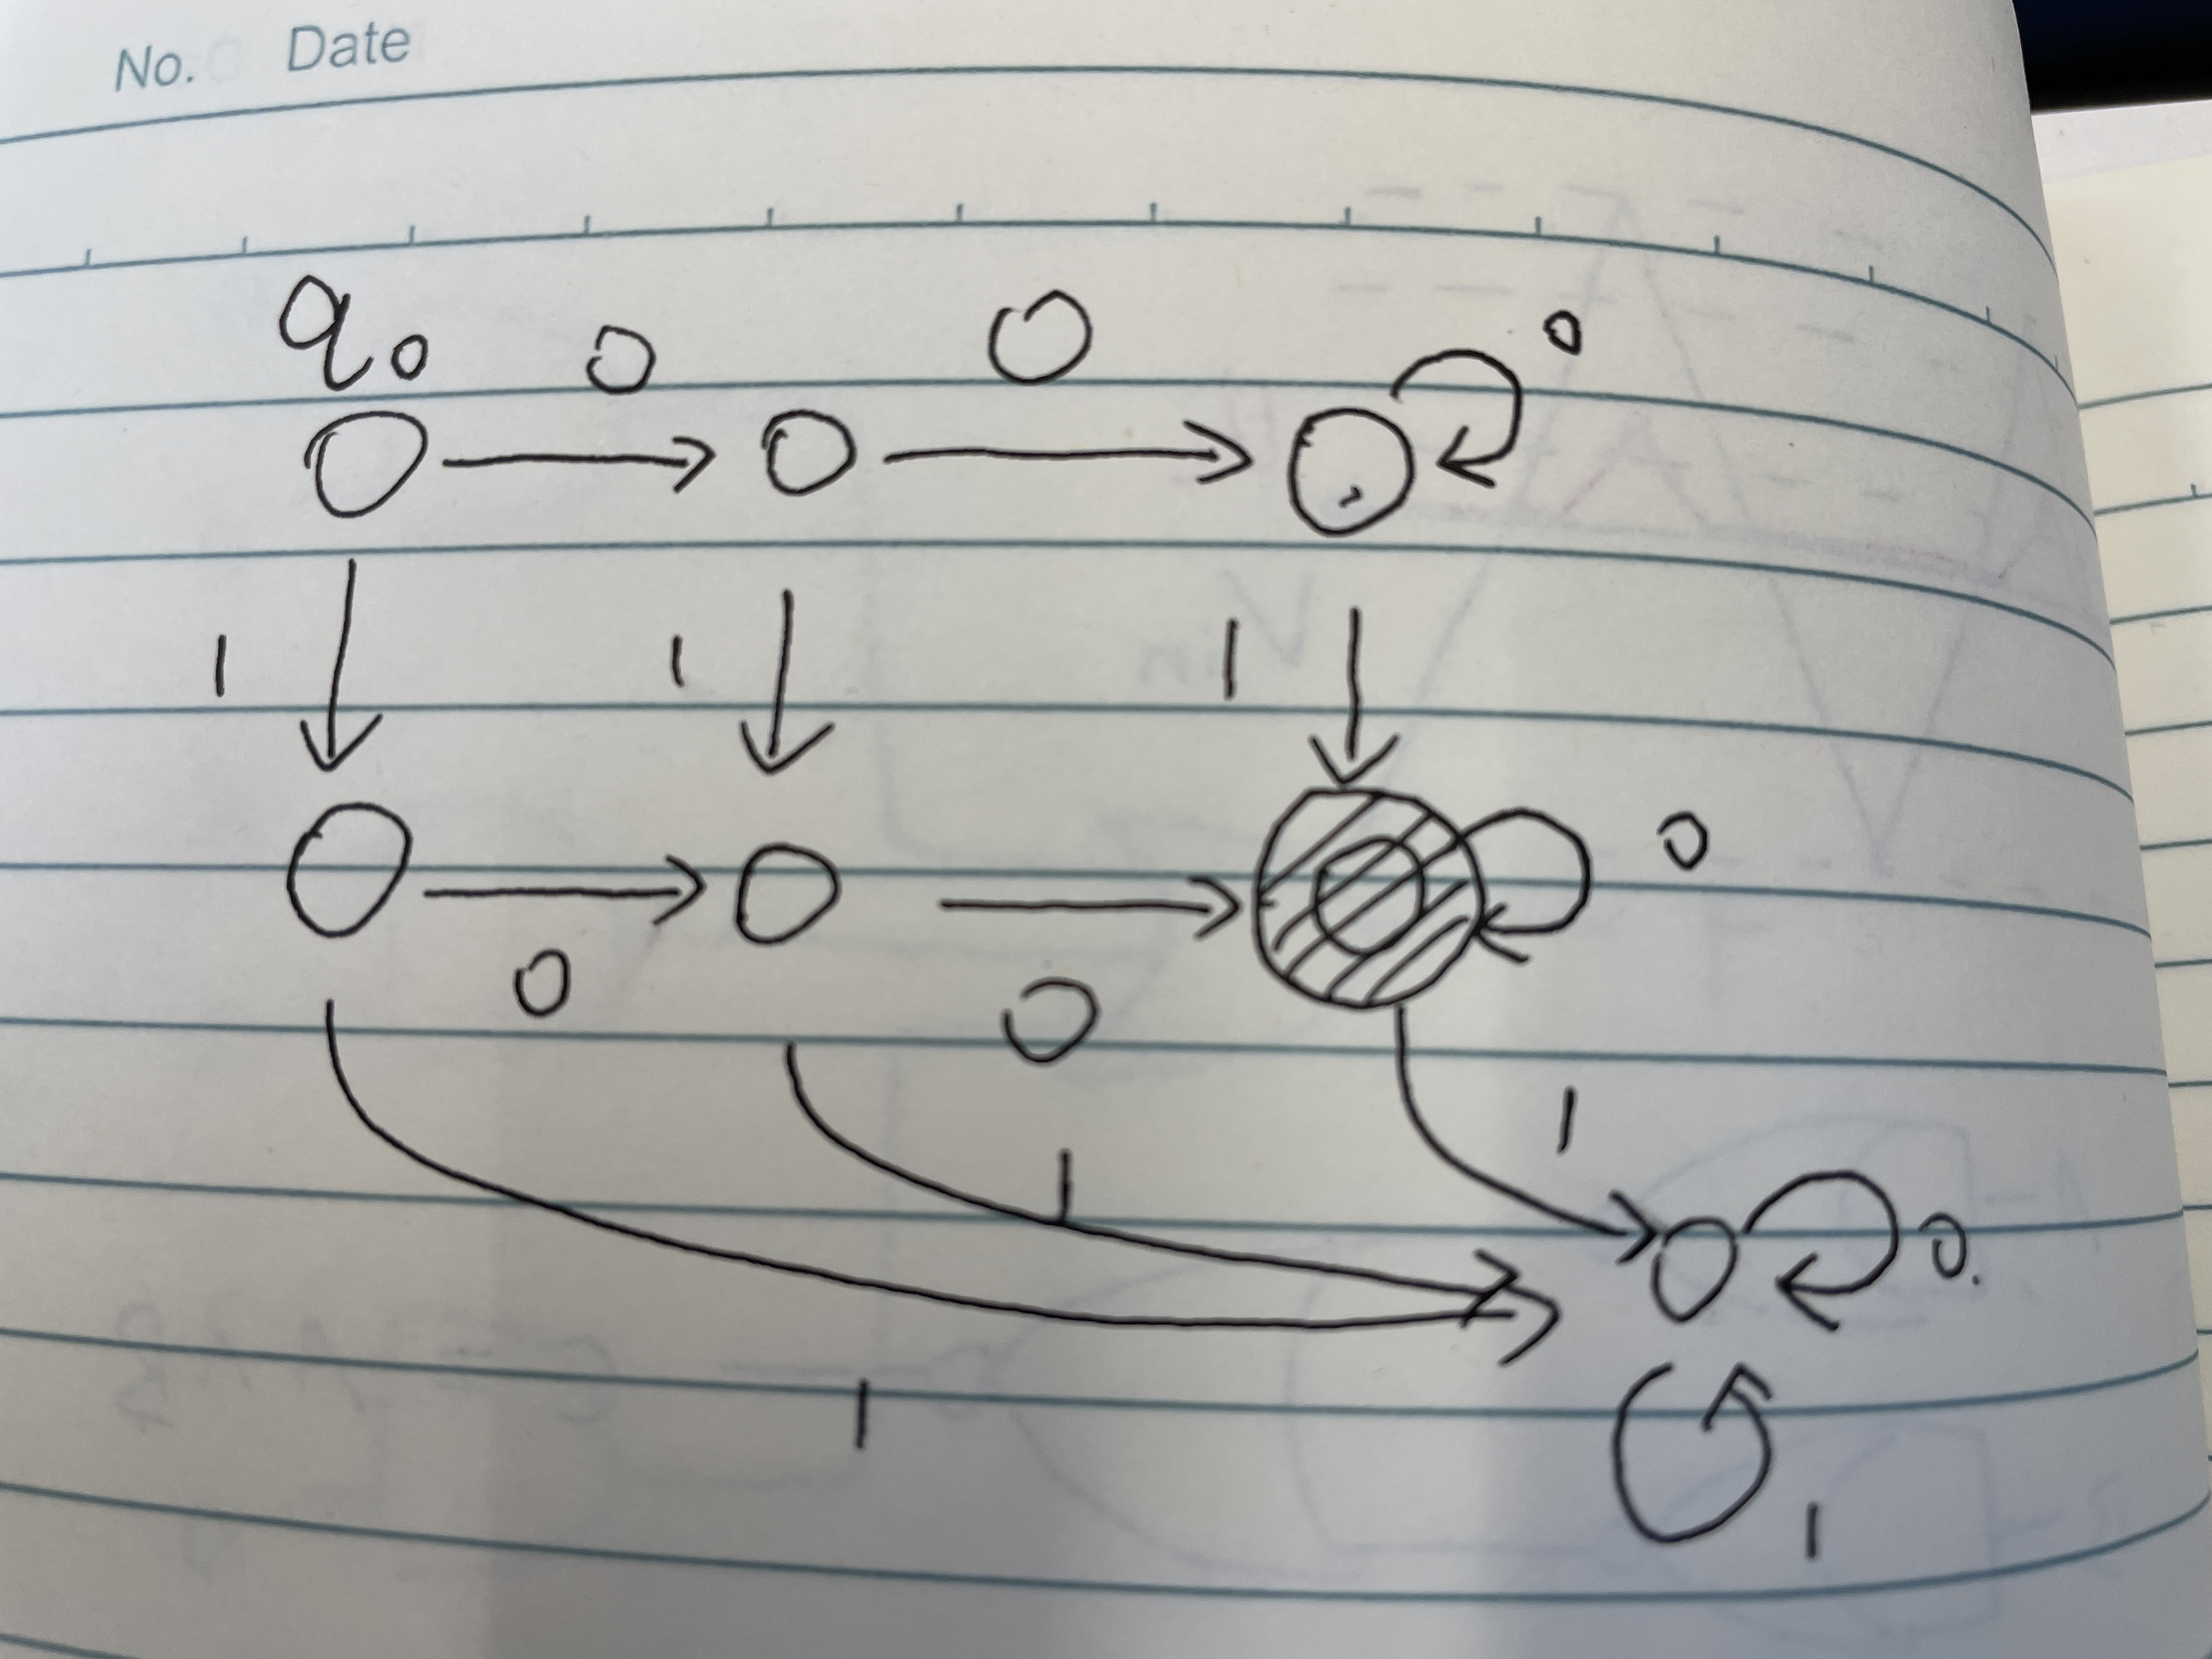 No. Date
q0 0 0 0
1 1 1
0
0 0
1 1
0.
1
1